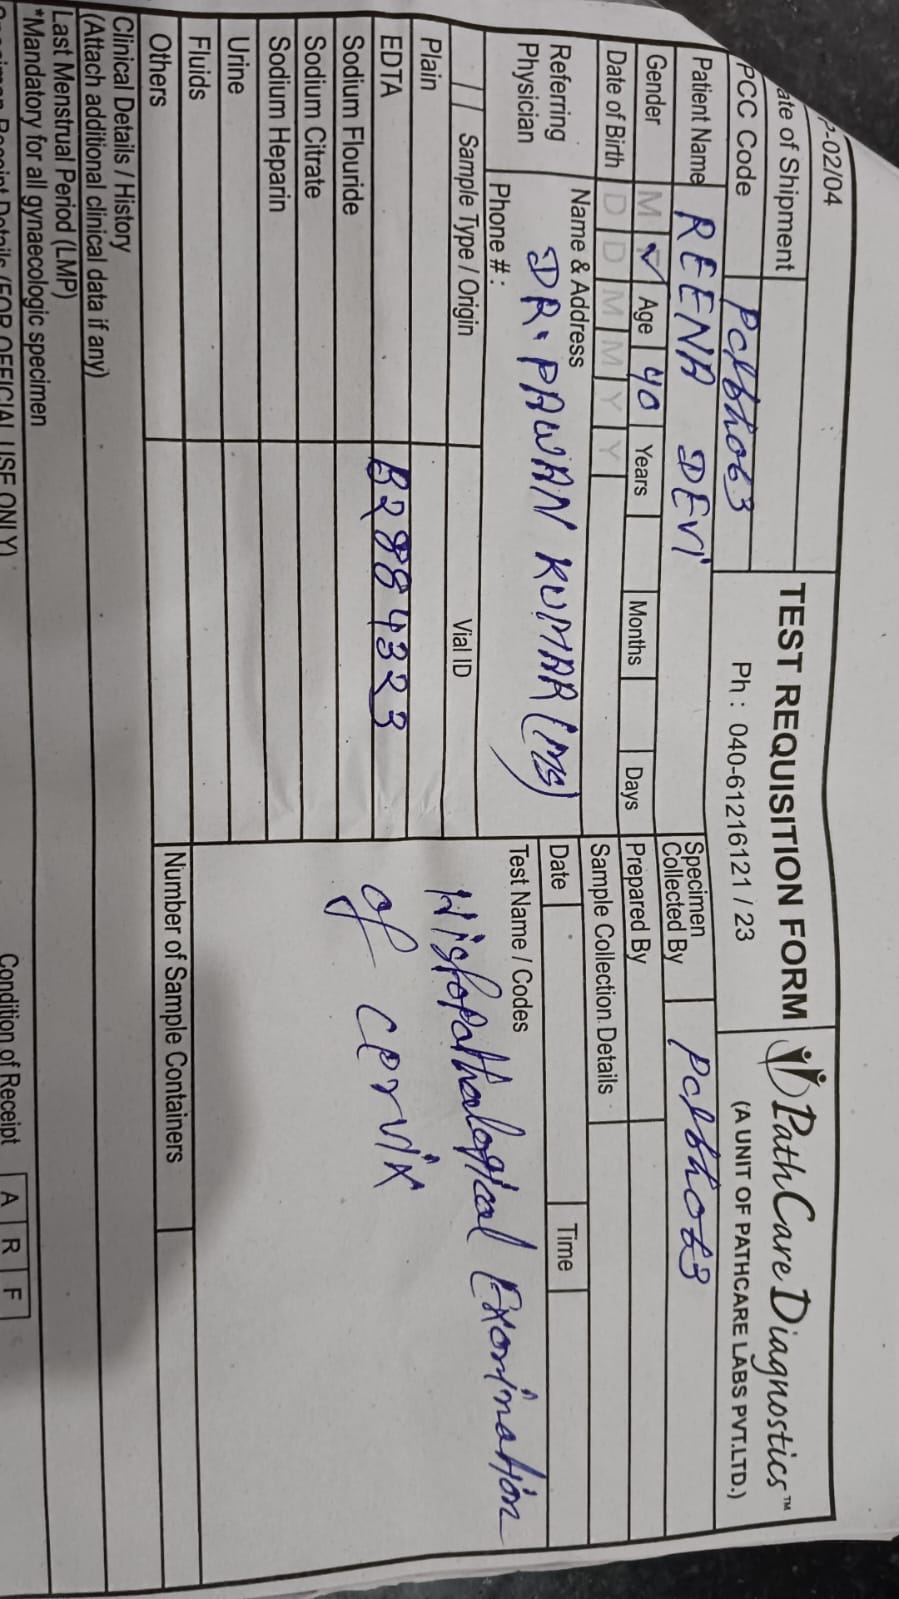 P-02/04
ate of Shipment
TEST REQUISITION FORM
PathCare Diagnostics™
PCC Code Pclbh063
Ph : 040-61216121 / 23
(A UNIT OF PATHCARE LABS PVT.LTD.)
Patient Name REENA DEVI
Specimen Collected By Pclbh063
Gender M ✓ Age 40 Years Months Days
Prepared By
Date of Birth D D M M Y Y
Sample Collection Details
Referring Physician
Name & Address
DR. PAWAN KUMAR (MS)
Phone # :
Date Time
Sample Type / Origin Vial ID
Test Name / Codes
Histopathalogical Examination
of cervix
Plain
EDTA B2884323
Sodium Flouride
Sodium Citrate
Sodium Heparin
Urine
Fluids
Others
Number of Sample Containers
Clinical Details / History
(Attach additional clinical data if any)
Last Menstrual Period (LMP)
*Mandatory for all gynaecologic specimen
Specimen Receipt Details (FOR OFFICIAL USE ONLY)
Condition of Receipt A R F